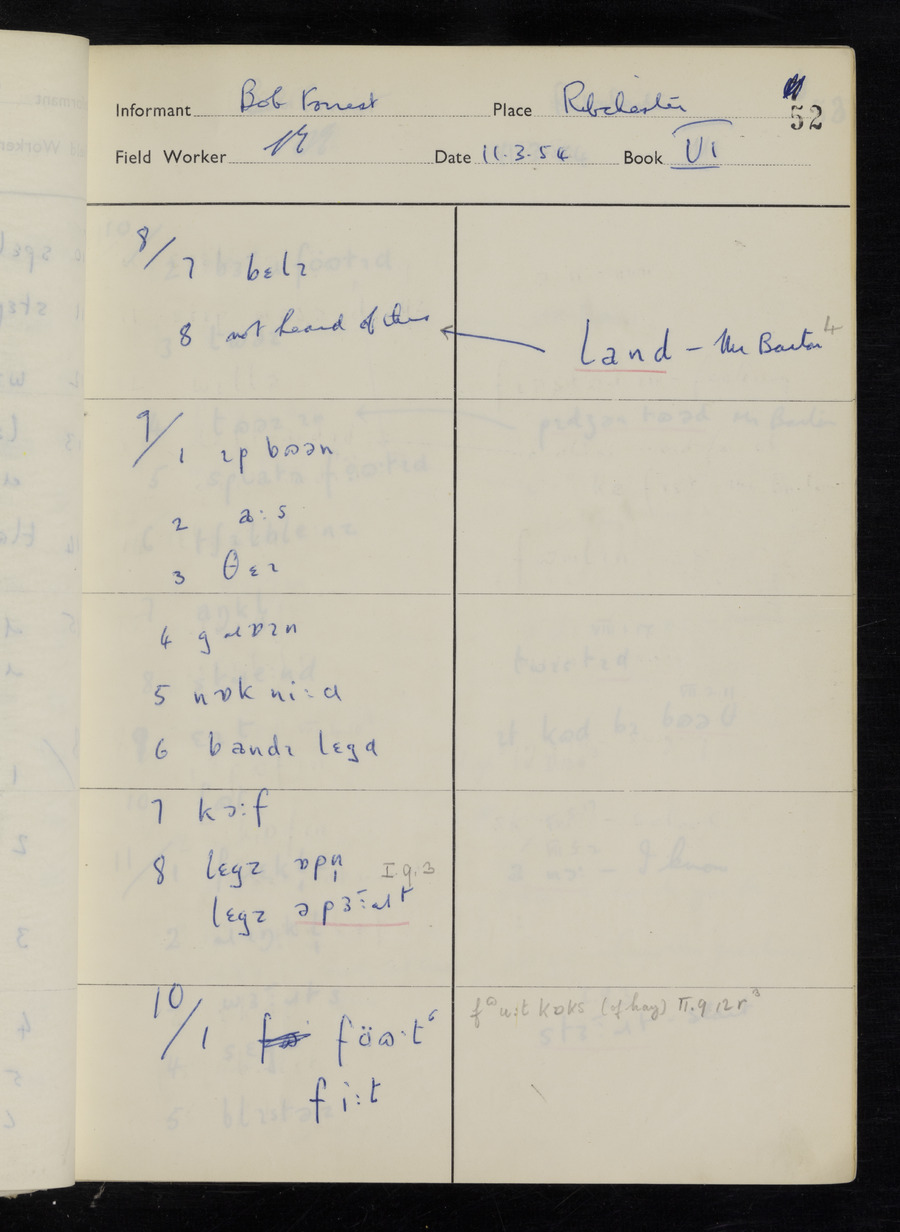 Informant Bob Forrest Place Ribchester 52
Field Worker Date 11.3.54 Book VI
8/7 bɛlɪ
8 not heard of this ← land – Mr Barton
9/1 ɪp bɷən
2 a:s
3 θɛɪ
4 gɹɒɪn
5 nɒk ni:d
6 bandɪ lɛgd
7 kɔ:f
8 lɛgz ɒpn̩ I.9.3
lɛgz əpɜ:ɹt
10/1 föɷ·t
fi:t
kɒks (of hay) II.9.12